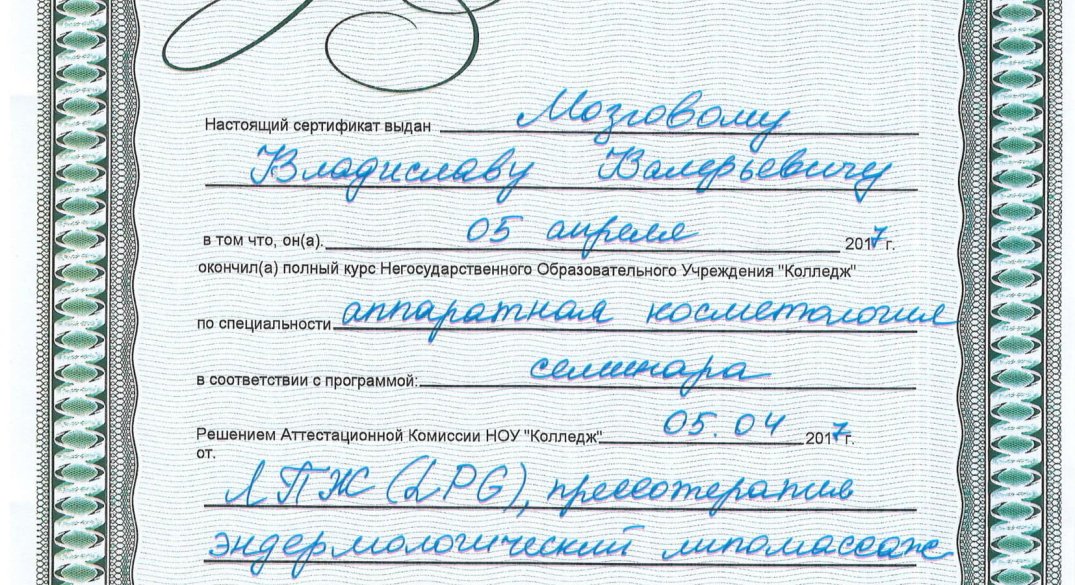 Настоящий сертификат выдан Мозговому
Владиславу Валерьевичу
в том что, он(а). 05 апреля 2017 г.
окончил(а) полный курс Негосударственного Образовательного Учреждения "Колледж"
по специальности аппаратная косметология
в соответствии с программой: семинара
Решением Аттестационной Комиссии НОУ "Колледж" 05.04 2017 г.
от.
ЛПЖ (LPG), прессотерапия
эндермологический липомассаж